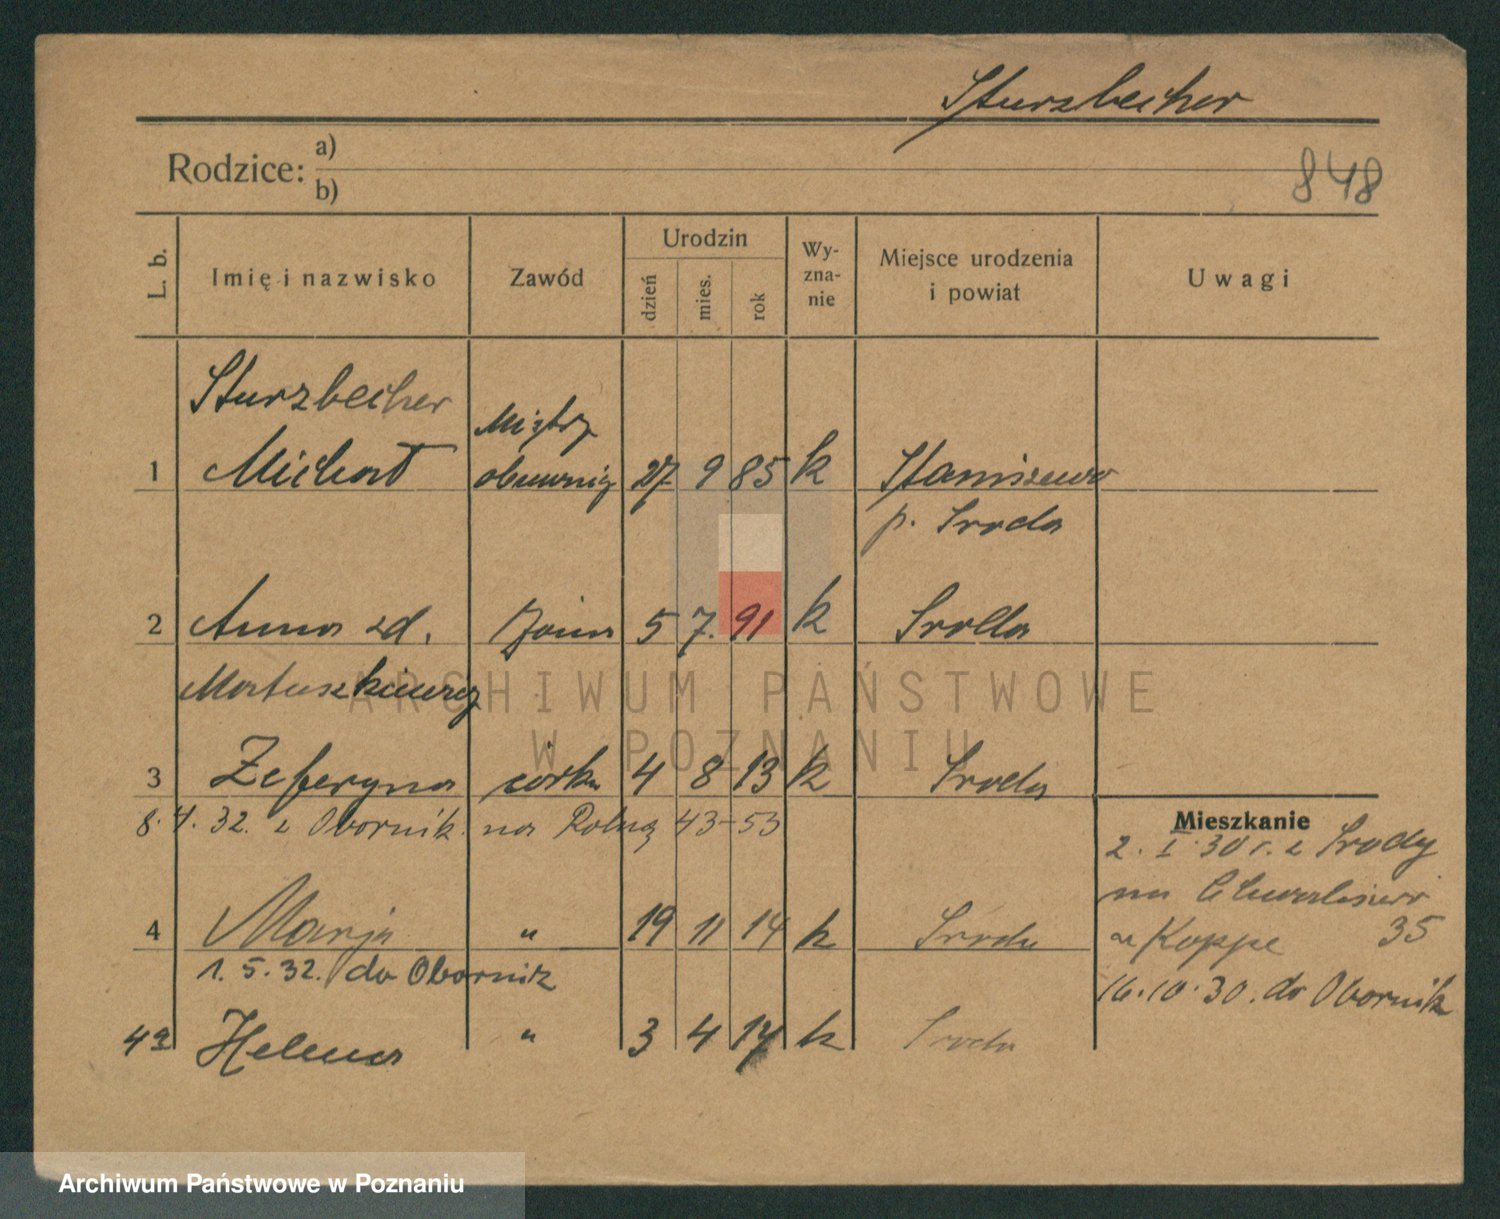 Sturzbecher
Rodzice: a)
b)
848
L. b. Imię i nazwisko Zawód Urodzin dzień mies. rok Wyznanie Miejsce urodzenia i powiat Uwagi
Sturzbecher Mistrz
1 Michał 27 9 85 k Staniszewo
p. Środa
2 Anna zd. żona 5 7. 91 k Środa
Matuszkiewicz
3 Zeferyna córka 4 8 13 k Środa
8. 4. 32. z Obornik. na Rolną 43-53
Mieszkanie
2. I. 30 r. z Środy
na
4 Marja " 19 11 14 k Środa
u Koppe 35
1. 5. 32. do Obornik
16.10.30. do Obornik
4a Helena " 3 4 17 k Środa
ARCHIWUM PAŃSTWOWE
W POZNANIU
Archiwum Państwowe w Poznaniu